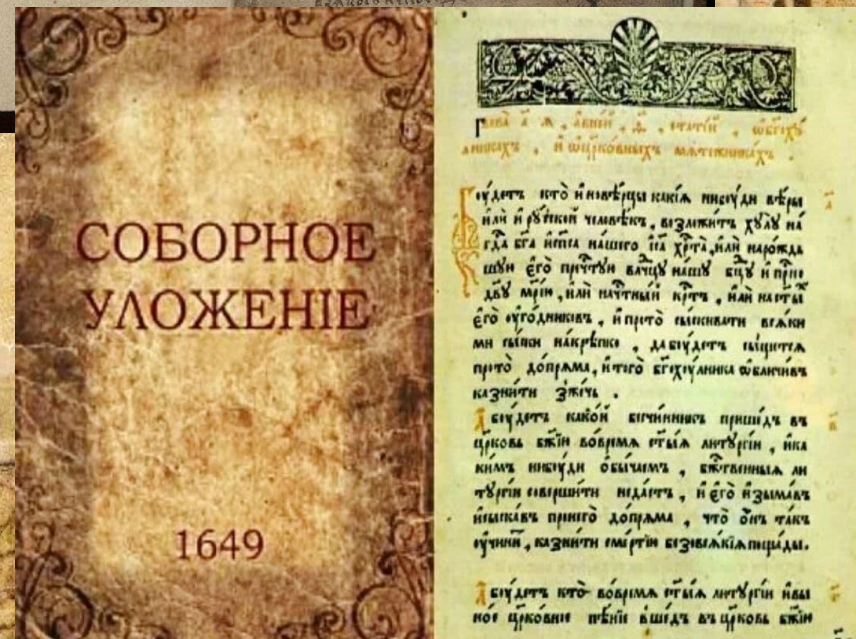 СОБОРНОЕ
УЛОЖЕНІЕ
1649
Глава а҃ я , а в ней , ѳ҃ , статїй , ѡ бг҃оху
лникахъ , и ѡ цр҃ковныхъ мѧтежникахъ .
Бꙋдетъ кто̀ и҆новѣ́рцы какі́ѧ нибꙋ́ди вѣ́ры
и҆лѝ и҆ рꙋ́ской человѣ́къ , возложи́тъ хꙋлꙋ̀ на́
гдⷭ҇а бг҃а и҆ сп҃са нашего і҆с҃а хрⷭ҇та̀ , и҆лѝ на рожд̾ь
шꙋю є҆го̀ пречⷭ҇тꙋю влчⷣцꙋ нашꙋ бцⷣꙋ и҆ прⷭ҇но
дв҃ꙋ мр҃і́ю , и҆лѝ на чⷭ҇тны́й крⷭ҇тъ , и҆лѝ на ст҃ы́хъ
є҆го̀ ᲂу҆го́дниковъ , и҆ про то̀ сы́скивати всѧ́ки
ми сы́ски на́крѣпко , да бꙋ́детъ сы́щетсѧ
про то̀ допрѧ́ма , и҆ того̀ бг҃охꙋ́лника ѡ҆бличи́въ
казни́ти зже́чь .
А҆ бꙋ́детъ како́й безчи́нникъ прише́дъ въ
цр҃ковь бж҃ію во́ время ст҃ы́ѧ литꙋргі́и , и҆ ка
ки́мъ нибꙋ́ди ѻ҆бы́чаемъ , бжⷭ҇твенныѧ ли
тꙋргі́и соверши́ти не да́стъ , и҆ є҆го̀ и҆зыма́въ
и҆ сы́скавъ про него̀ допрѧ́ма , что̀ ѻ҆́нъ та́къ
ᲂу҆чини́тъ , казни́ти сме́ртїю безо всѧ́кїѧ поща́ды .
А҆ бꙋ́детъ кто̀ во́ время ст҃ы́ѧ литꙋргі́и и҆ в̾ы
ное цр҃ко́вное пѣ́нїе вше́дъ въ цр҃ковь бж҃ію